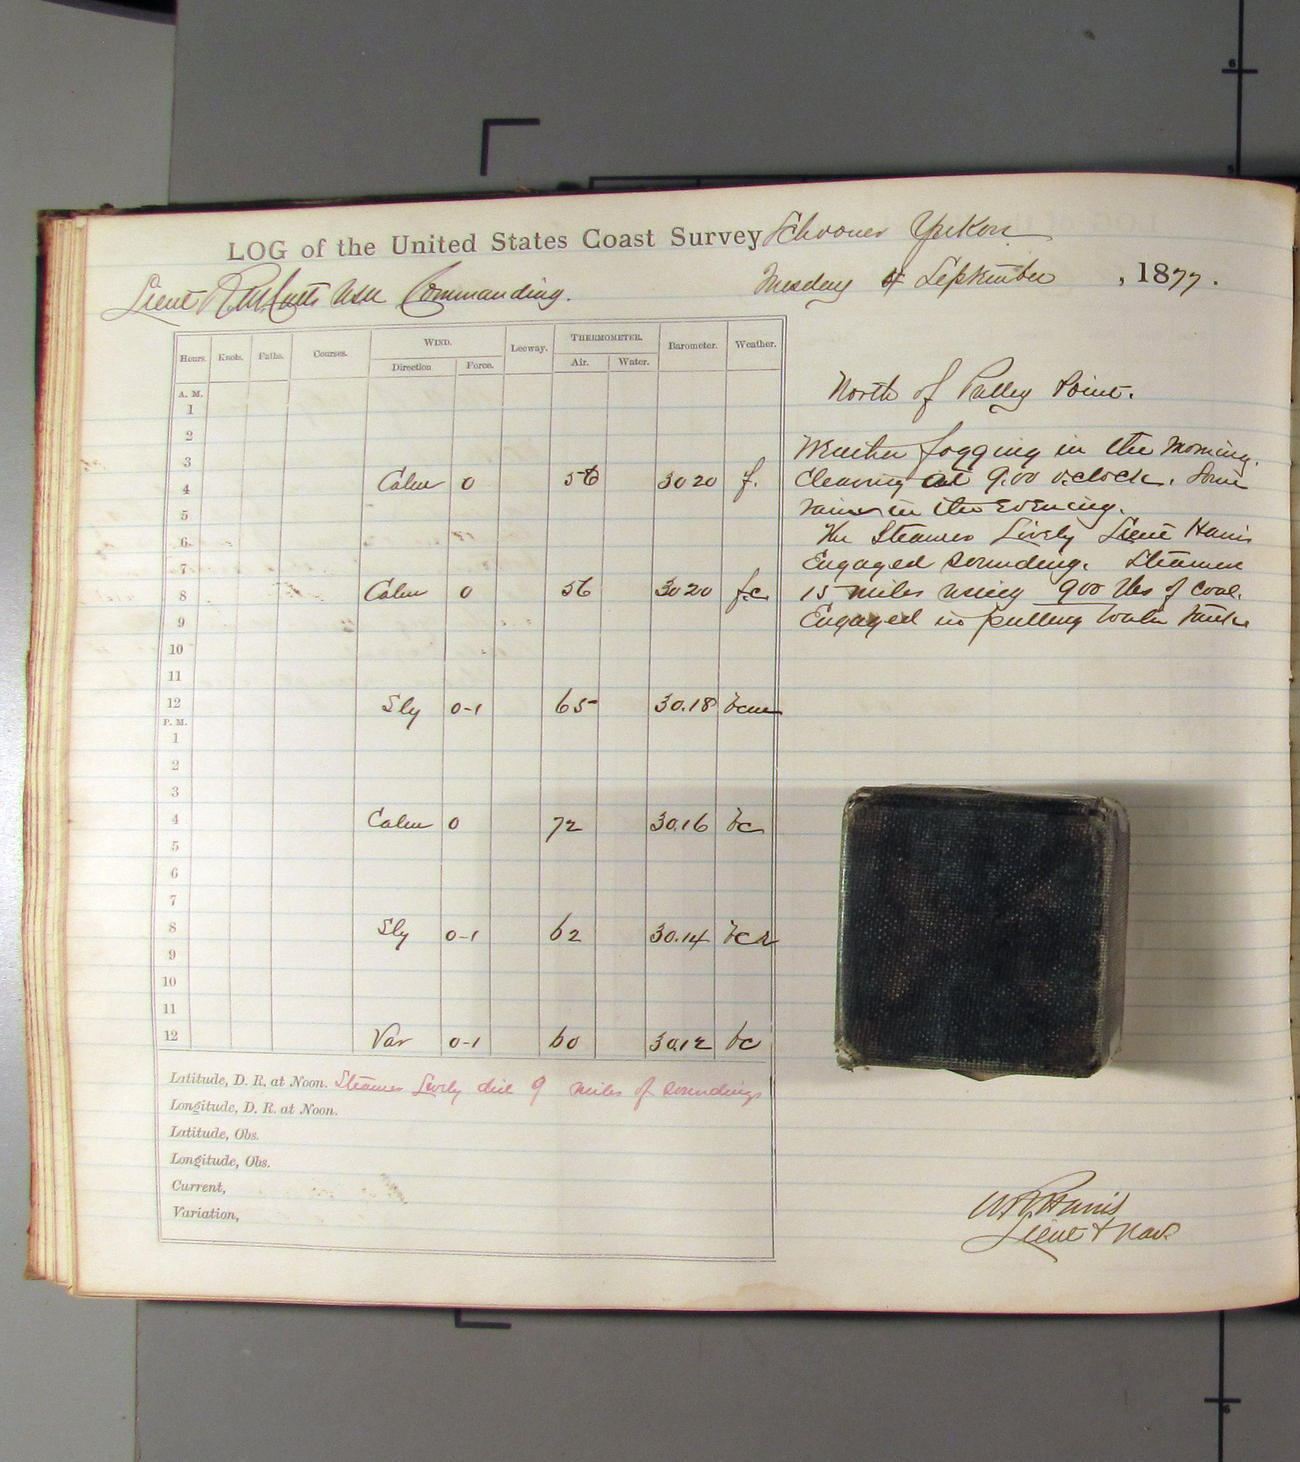 LOG of the United States Coast Survey Schooner Yukon
Lieut R. M. Cutts USN Commanding.
Tuesday 4 September, 1877.
Hours. Knots. Faths. Courses. WIND. Leeway. THERMOMETER. Barometer. Weather.
Direction Force. Air. Water.
A. M.
1
2
3
4 Calm 0 56 30 20 f.
5
6
7
8 Calm 0 56 30 20 f.c.
9
10
11
12 Sly 0-1 65 30.18 bcm
P. M.
1
2
3
4 Calm 0 72 30.16 bc
5
6
7
8 Sly 0-1 62 30.14 bcr
9
10
11
12 Var 0-1 60 30.12 bc
Latitude, D. R. at Noon. Steamer Lively did 9 miles of soundings
Longitude, D. R. at Noon.
Latitude, Obs.
Longitude, Obs.
Current,
Variation,
North of Point.
Weather fogging in the morning.
Clearing at 9.00 oclock. Some
rain in the evening.
The Steamer Lively Lieut Harris
Engaged sounding. Steamed
15 miles using 900 lbs of coal.
Engaged in putting water tanks
Harris
Lieut & Nav.